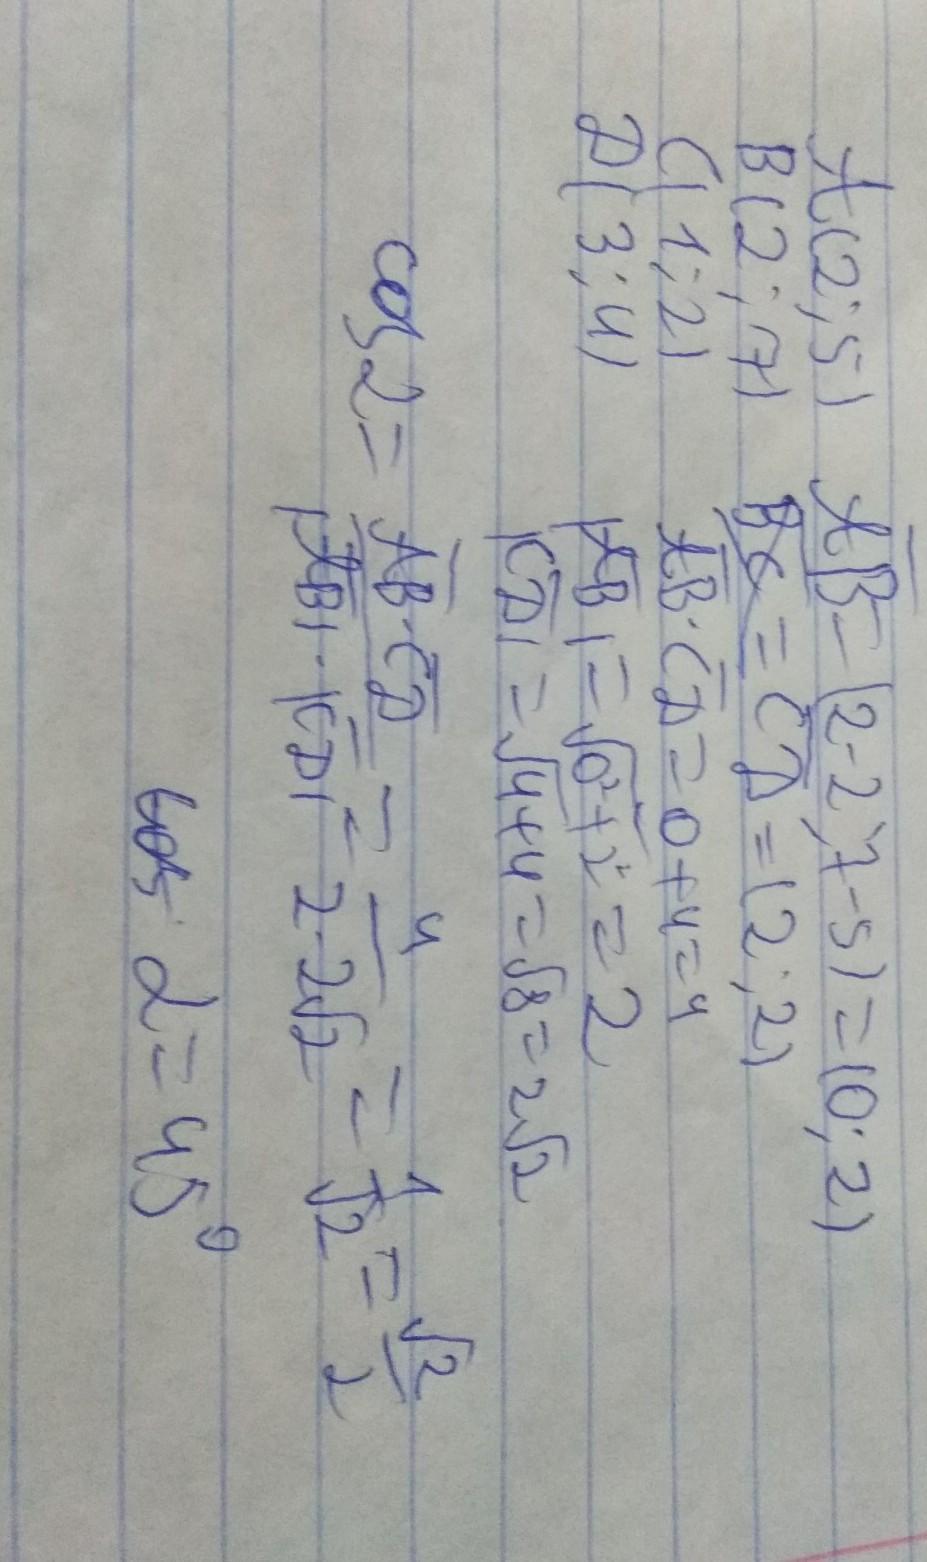 A(2;5) AB = (2-2;7-5) = (0;2)
B(2;7) CD = (2;2)
C(1;2) AB·CD = 0+4=4
D(3;4) |AB| = √0²+2² = 2
|CD| = √4+4 = √8 = 2√2
cos α = AB·CD / |AB|·|CD| = 4 / 2·2√2 = 1/√2 = √2/2
α = 45°